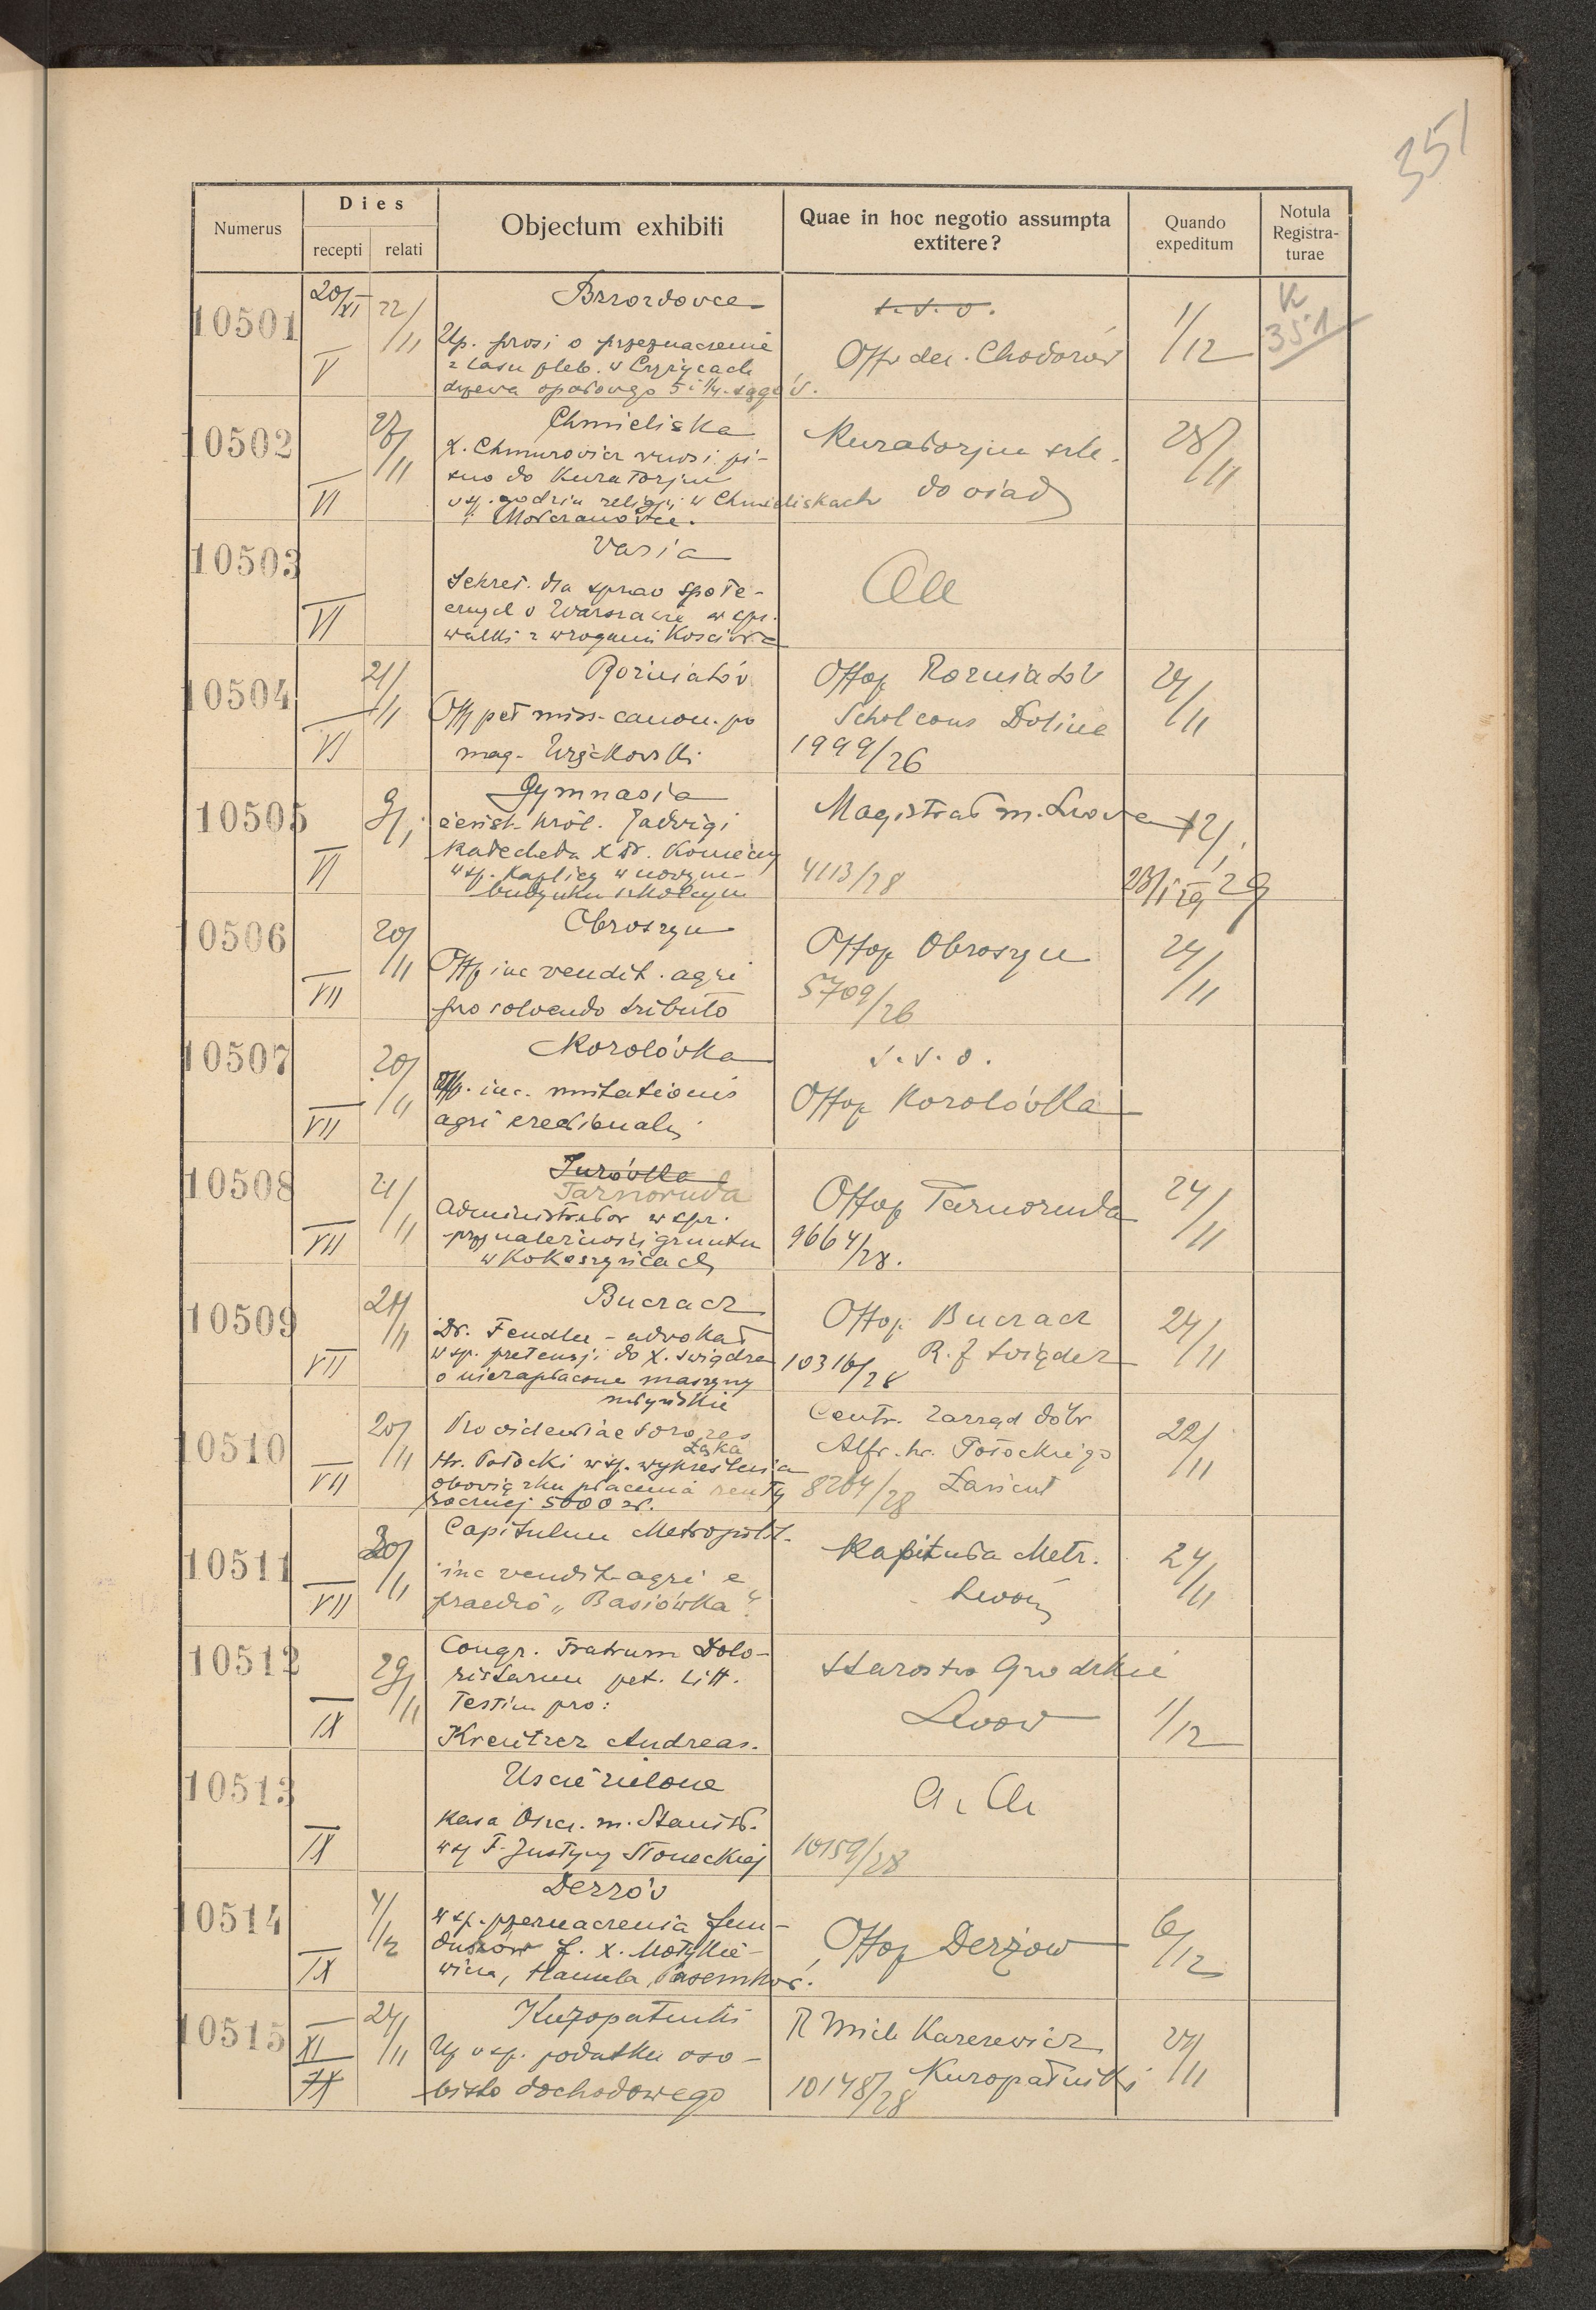 351
Numerus
Dies
recepti
relati
Objectum exhibiti
Quae in hoc negotio assumpta
extitere?
Quando
expeditum
Notula
Registra-
turae
10501
20/XI
V
22/11
Brzozdowce
Up. prosi o przeznaczenie
z lasu pleb. w
drzewa opałowego 5 i 1/4 sągów.
s.v.o.
Offo dec. Chodorów
1/12
K
351
10502
VI
27/11
Chmieliska
X. Chmurowicz wnosi pi-
smo do Kuratorjum
wsp. godzin religji w Chmieliskach
i
Kuratorjum szk.
28/11
10503
VI
Varia
Sekret. dla spraw społe-
cznych w Warszawie w spr.
walki z wrogami Kościoła
10504
VI
21/11
Rożniatów
Offp pet miss-canon. po
mag.
Offop Rożniatów
Schol cons Dolina
1999/26
24/11
10505
VI
9/1
Gymnasia
żeńsk. król. Jadwigi
Katecheta X dr. Konieczny
wsp. kaplicy w nowym
budynku szkolnym
Magistrat m. Lwowa
4113/28
12/1
23/1 29
10506
VII
20/11
Obroszyn
Offp inc vendit. agri
pro solvendo tributo
Offop Obroszyn
5709/26
24/11
10507
VII
20/11
Korolówka
Offp. inc. mutationis
agri erectionalis
s.v.o.
Offop Korolówka
10508
VII
21/11
Jurówka
Tarnoruda
Administrator w spr.
przynależności gruntu
w Kokoszyńcach
Offop Tarnoruda
9664/28.
24/11
10509
VII
21/11
Buczacz
Dr. Fendler - adwokat
wsp. pretensji do X. Świądra
o niezapłacone maszyny
młyńskie
Offop. Buczacz
R. J Świąder
10316/28
24/11
10510
VII
20/11
Łąka
Hr. Potocki wsp. wykreślenia
obowiązku płacenia renty
rocznej 5000 zł.
Centr. Zarząd dóbr
Alfr. hr. Potockiego
Łańcut
8264/28
22/11
10511
VII
20/11
Capitulum Metropolit.
inc vendit agri e
praedio „Basiówka".
Kapituła Metr.
Lwów
24/11
10512
IX
29/11
Congr. Fratrum Dolo-
ristarum pet. litt.
Testim pro:
Kreutzer Andreas.
Starostwo Grodzkie
Lwów
1/12
10513
IX
Uście zielone
Kasa Oszcz. m. Stanisł.
wsp F. Justyny Słoneckiej
10159/28
10514
IX
4/12
Derżów
wsp. przeznaczenia fun-
duszów f. X. Motylkie-
wicza, Hamula,
Offop Derżów
6/12
10515
XI
IX
24/11
Kuropatniki
Up wsp. podatku oso-
bisto dochodowego
R Mich Karerewicz
Kuropatniki
10148/28
24/11